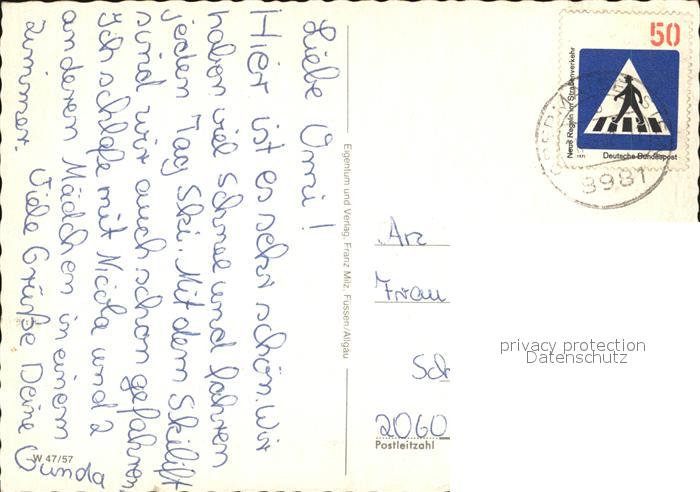 Liebe Omi!
Hier ist es sehr schön. Wir
haben viel Schnee und fahren
jeden Tag Ski. Mit dem Skilift
sind wir auch schon gefahren.
Ich schlafe mit Nicola und 2
anderen Mädchen in einem
Zimmer. Viele Grüße Deine
Gunda
W 47/57
Eigentum und Verlag, Franz Milz, Füssen/Allgäu
50
Neue Regeln im Straßenverkehr
1971
Deutsche Bundespost
8981
An
Frau
Sch
2060
Postleitzahl
privacy protection
Datenschutz